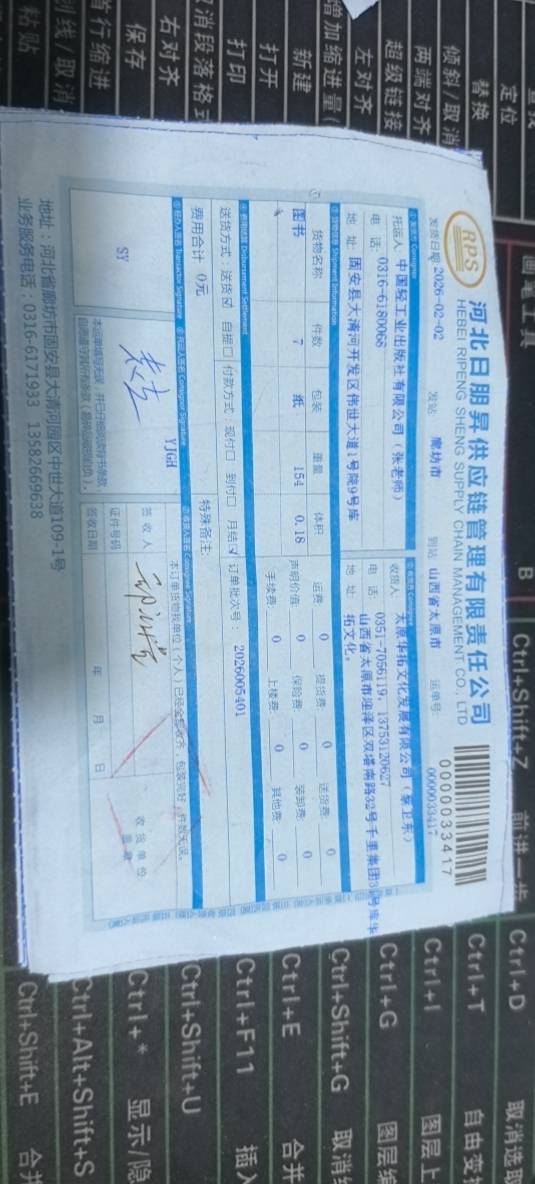 RPS
河北日朋昇供应链管理有限责任公司
HEBEI RIPENG SHENG SUPPLY CHAIN MANAGEMENT CO., LTD
00000333417
发货日期 2026-02-02 发站: 廊坊市 到站: 山西省太原市 运单号: 00000333417
①发货方 Consignor
托运人: 中国轻工业出版社有限公司 (张老师)
电 话: 0316-6180068
地 址: 固安县大清河开发区伟世大道1号院9号库
收货人 太原华拓文化发展有限公司 (李卫东)
电 话 0351-7056119, 13753120627
地 址: 山西省太原市迎泽区双塔南路32号千里集团3号库华
拓文化,
③货物信息 Shipment Information
货物名称 件数 包装 重量 体积
图书 7 纸 154 0.18
运费: 0 提货费: 0 送货费: 0
声明价值: 0 保险费: 0 装卸费: 0
手续费: 0 上楼费: 0 其他费: 0
④费用结算 Disbursement Settlement
送货方式: 送货☑ 自提□ 付款方式: 现付□ 到付□ 月结☑ 订单批次号: 2026005401
费用合计 0元 特殊备注:
⑤经办人签名 Transactor Signature ⑥托运人签名 Consignor Signature ⑦收货人签名 Consignee Signature
SY
YJGH
本订单货物我单位(个人)已经全部收齐, 包装完好, 件数无误。
签 收 人
证件号码
签收日期 年 月 日
收货单位:
盖章
地址: 河北省廊坊市固安县大清河园区中世大道109-1号
业务服务电话: 0316-6171933 13582669638
定位
替换
倾斜/取消
两端对齐
超级链接
左对齐
增加缩进量(
新建
打开
打印
消段落格式
右对齐
保存
首行缩进
划线/取消
粘贴
画笔工具
B
Ctrl+Shift+Z 前进一步
Ctrl+D 取消选
Ctrl+T 自由变
Ctrl+I 图层上
Ctrl+G 图层编
Ctrl+Shift+G 取消
Ctrl+E 合并
Ctrl+F11 插入
Ctrl+Shift+U
Ctrl+* 显示/隐
Ctrl+Alt+Shift+S
Ctrl+Shift+E 合并